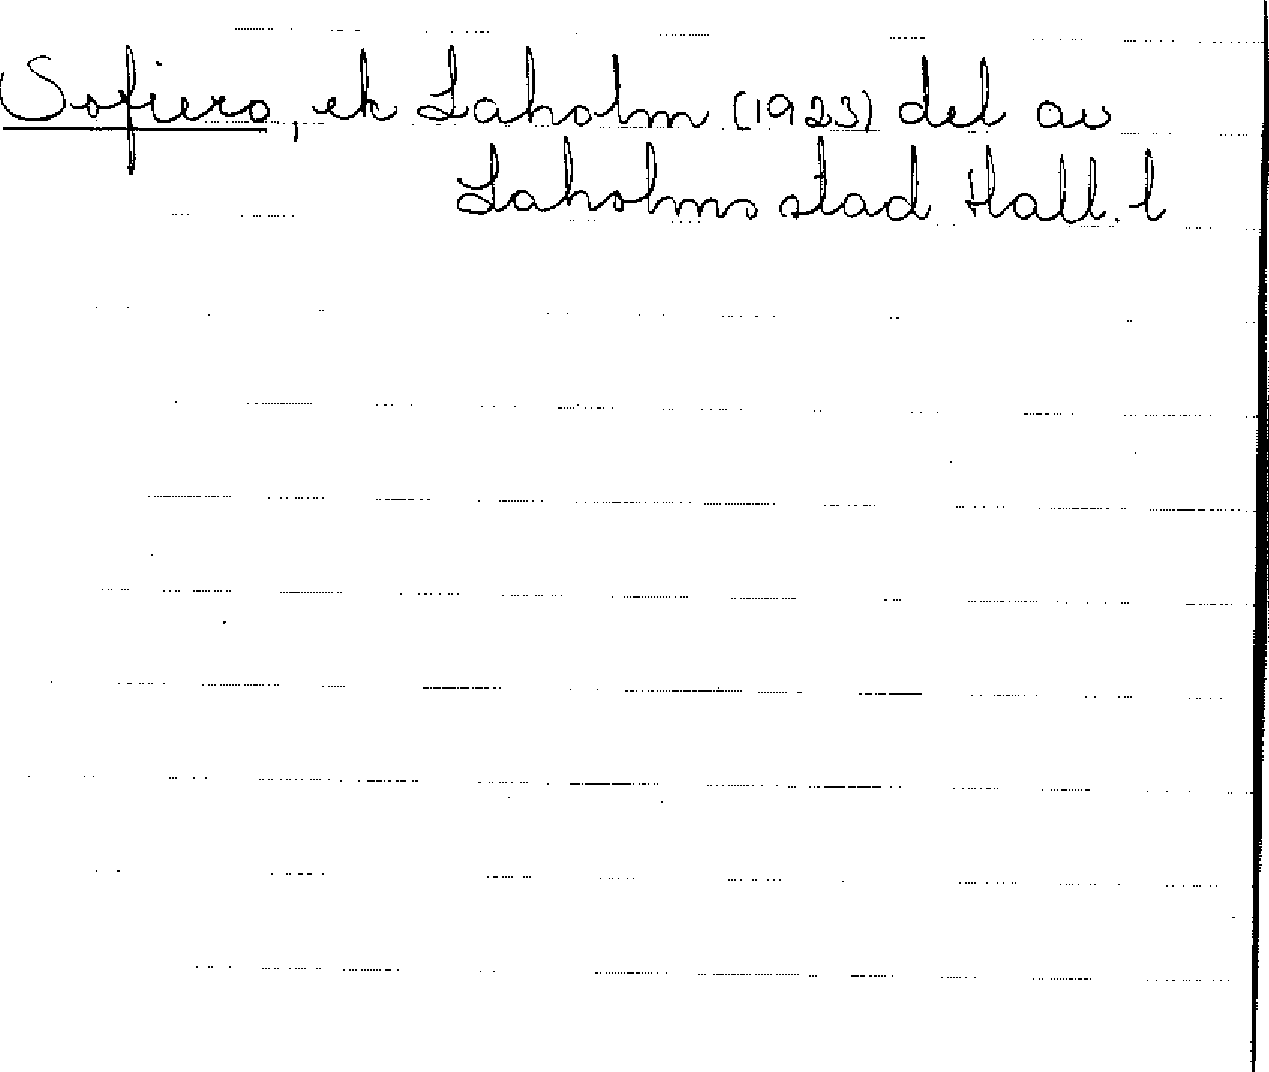 Sofiero, ek Laholm (1923) del av
Laholms stad Hall. l